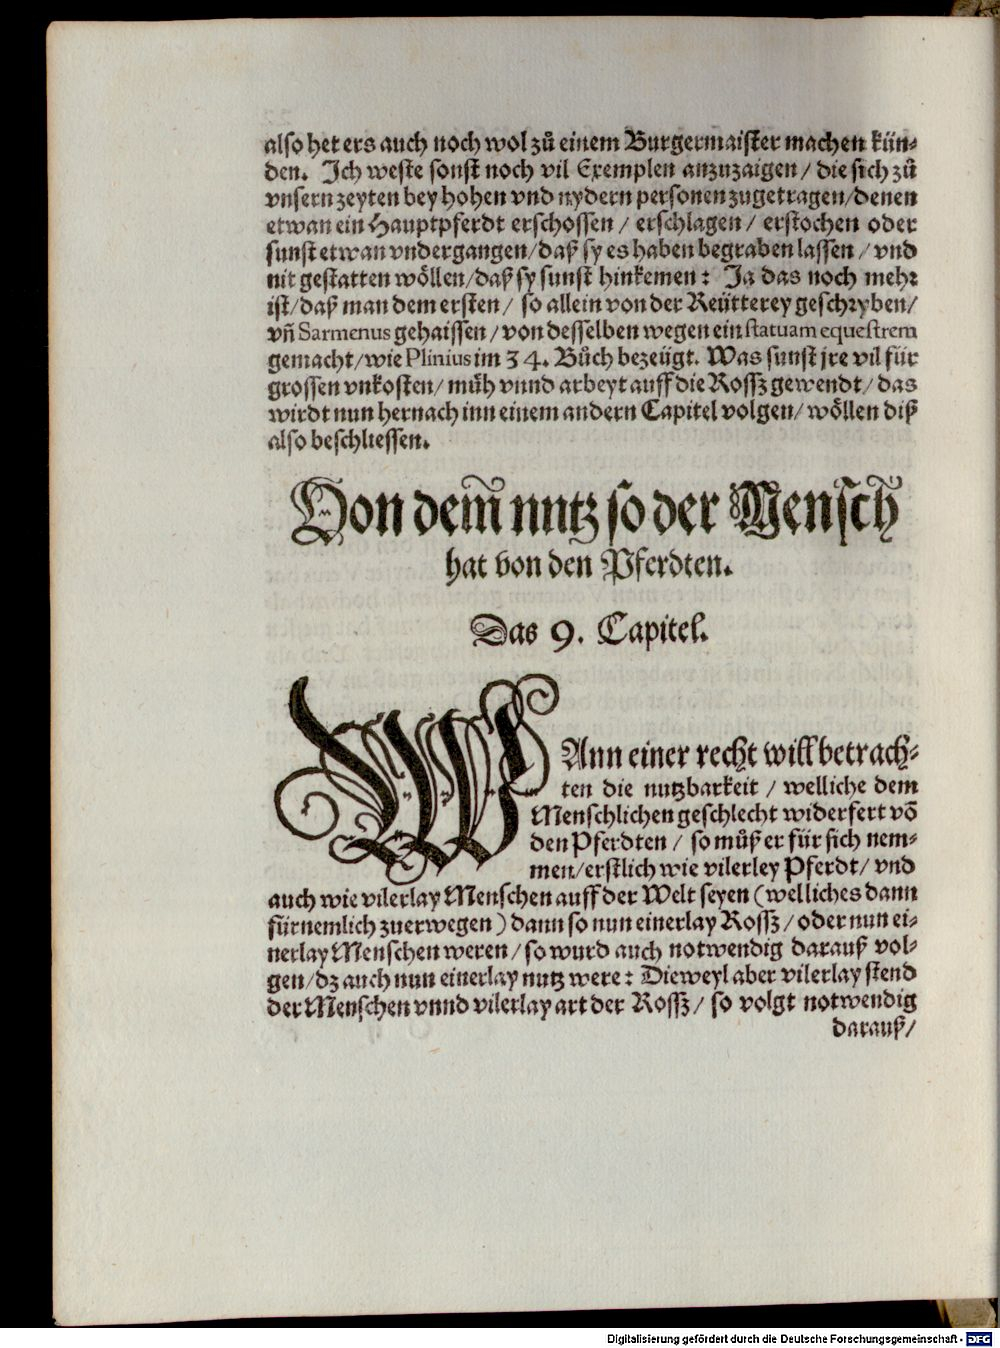 also het ers auch noch wol zů einem Burgermaister machen kün-
den. Ich weste sonst noch vil Exemplen anzuzaigen / die sich zů
vnsern zeyten bey hohen vnd nydern personen zugetragen/denen
etwan ein Hauptpferdt erschossen / erschlagen / erstochen oder
sunst etwan vndergangen/daß sy es haben begraben lassen / vnd
nit gestatten wöllen/daß sy sunst hinkemen: Ja das noch mehr
ist/daß man dem ersten / so allein von der Reütterey geschryben/
vñ Sarmenus gehaissen / von desselben wegen ein statuam equestrem
gemacht/wie Plinius im 34. Bůch bezeügt. Was sunst jre vil für
grossen vnkosten/ müh vnnd arbeyt auff die Rossz gewendt/ das
wirdt nun hernach inn einem andern Capitel volgen/ wöllen diß
also beschliessen.
Von dem̃ nutz so der Mensch
hat von den Pferdten.
Das 9. Capitel.
WAnn einer recht will betrach-
ten die nutzbarkeit / welliche dem
Menschlichen geschlecht widerfert võ
den Pferdten / so můß er für sich nem-
men/erstlich wie vilerley Pferdt/ vnd
auch wie vilerlay Menschen auff der Welt seyen (welliches dann
fürnemlich zuerwegen) dann so nun einerlay Rossz/ oder nun ei-
nerlay Menschen weren / so wurd auch notwendig darauß vol-
gen/dz auch nun einerlay nutz were: Dieweyl aber vilerlay stend
der Menschen vnnd vilerlay art der Rossz/ so volgt notwendig
darauß/
Digitalisierung gefördert durch die Deutsche Forschungsgemeinschaft - DFG